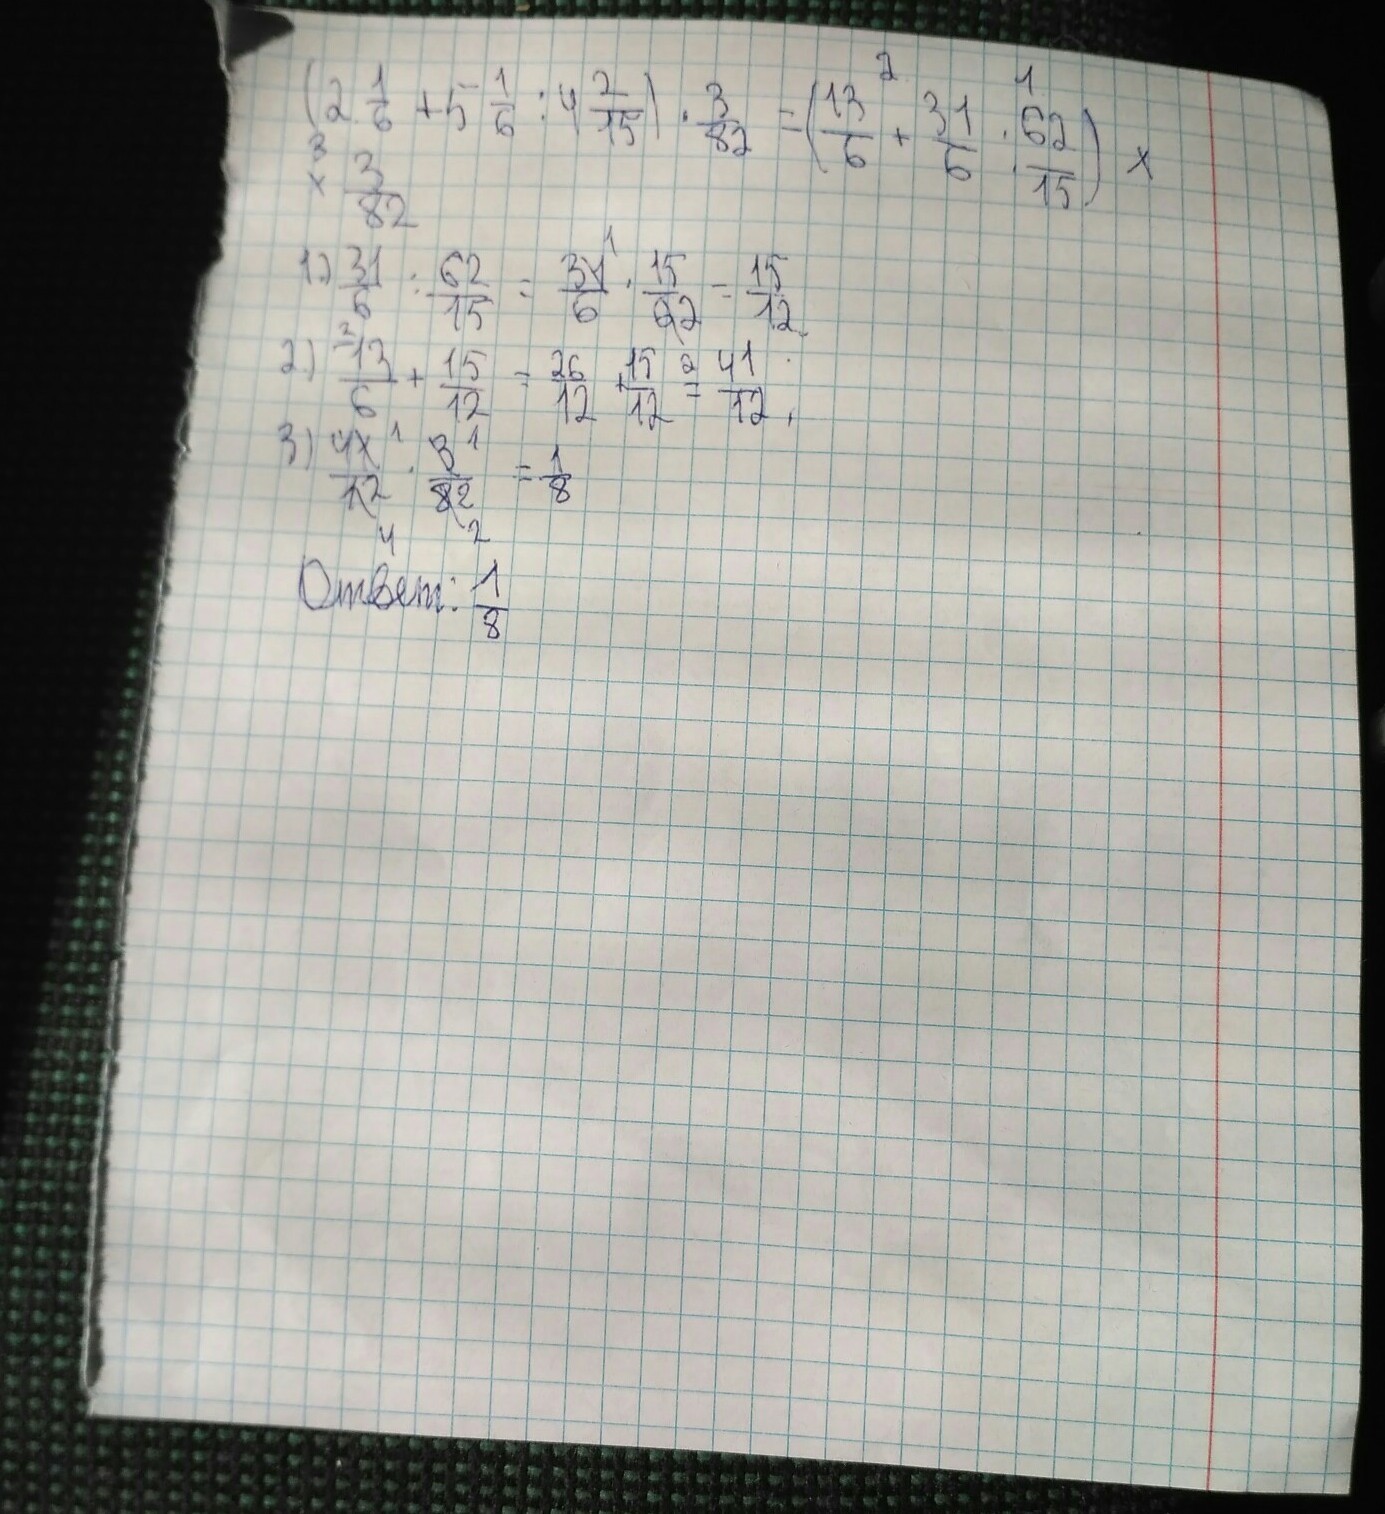 (2 1/6 + 5 1/6 : 4 2/15) · 3/82 = (13/6 + 31/6 : 62/15) ×
× 3/82
1) 31/6 : 62/15 = 31/6 · 15/62 = 15/12
2) 13/6 + 15/12 = 26/12 + 15/12 = 41/12,
3) 41/12 · 3/82 = 1/8
Ответ: 1/8